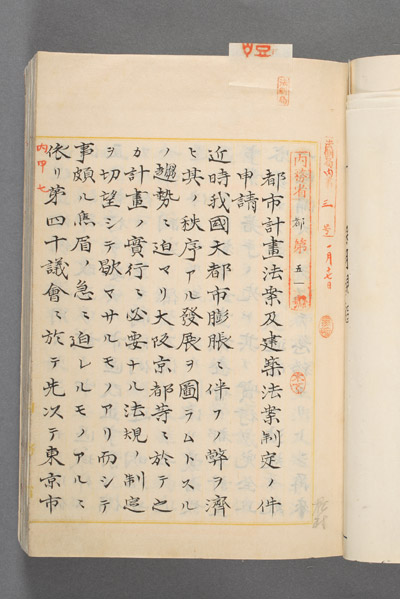 三 一月七日
内務省 都 第 五一 號
都市計畫法案及建築法案制定ノ件
申請
近時我國大都市膨脹ニ伴フノ弊ヲ濟
ヒ其ノ秩序アル發展ヲ圖ラムトスル
ノ趨勢ニ迫マリ大阪京都等ニ於テ之
カ計畫ノ實行ニ必要ナル法規ノ制定
ヲ切望シテ歇マサルモノアリ而シテ
事頗ル焦眉ノ急ニ迫レルモノアルニ
依リ第四十議會ニ於テ先次テ東京市
内甲七